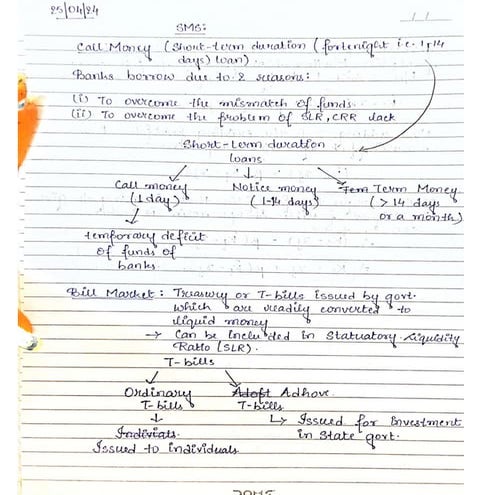 25/04/24
SMS:
Call Money (Short-term duration (fortenight i.e. 1 14
days) loan)
Banks borrow due to 2 reasons:
(i) To overcome the mismatch of funds.
(ii) To overcome the problem of SLR, CRR lack
Short-term duration
loans
Call money Notice money Term Money
(1 day) (1-14 days) (> 14 days
or a month)
temporary deficit
of funds of
banks
Bill Market: Treasury or T-bills issued by govt.
which are readily converted to
liquid money
→ Can be included in Statuatory Liquidity
Ratio (SLR).
T-bills
Ordinary Adoft Adhovs
T-bills T-bills
Indiviats. ↳ Issued for Investment
in State govt.
Issued to individuals